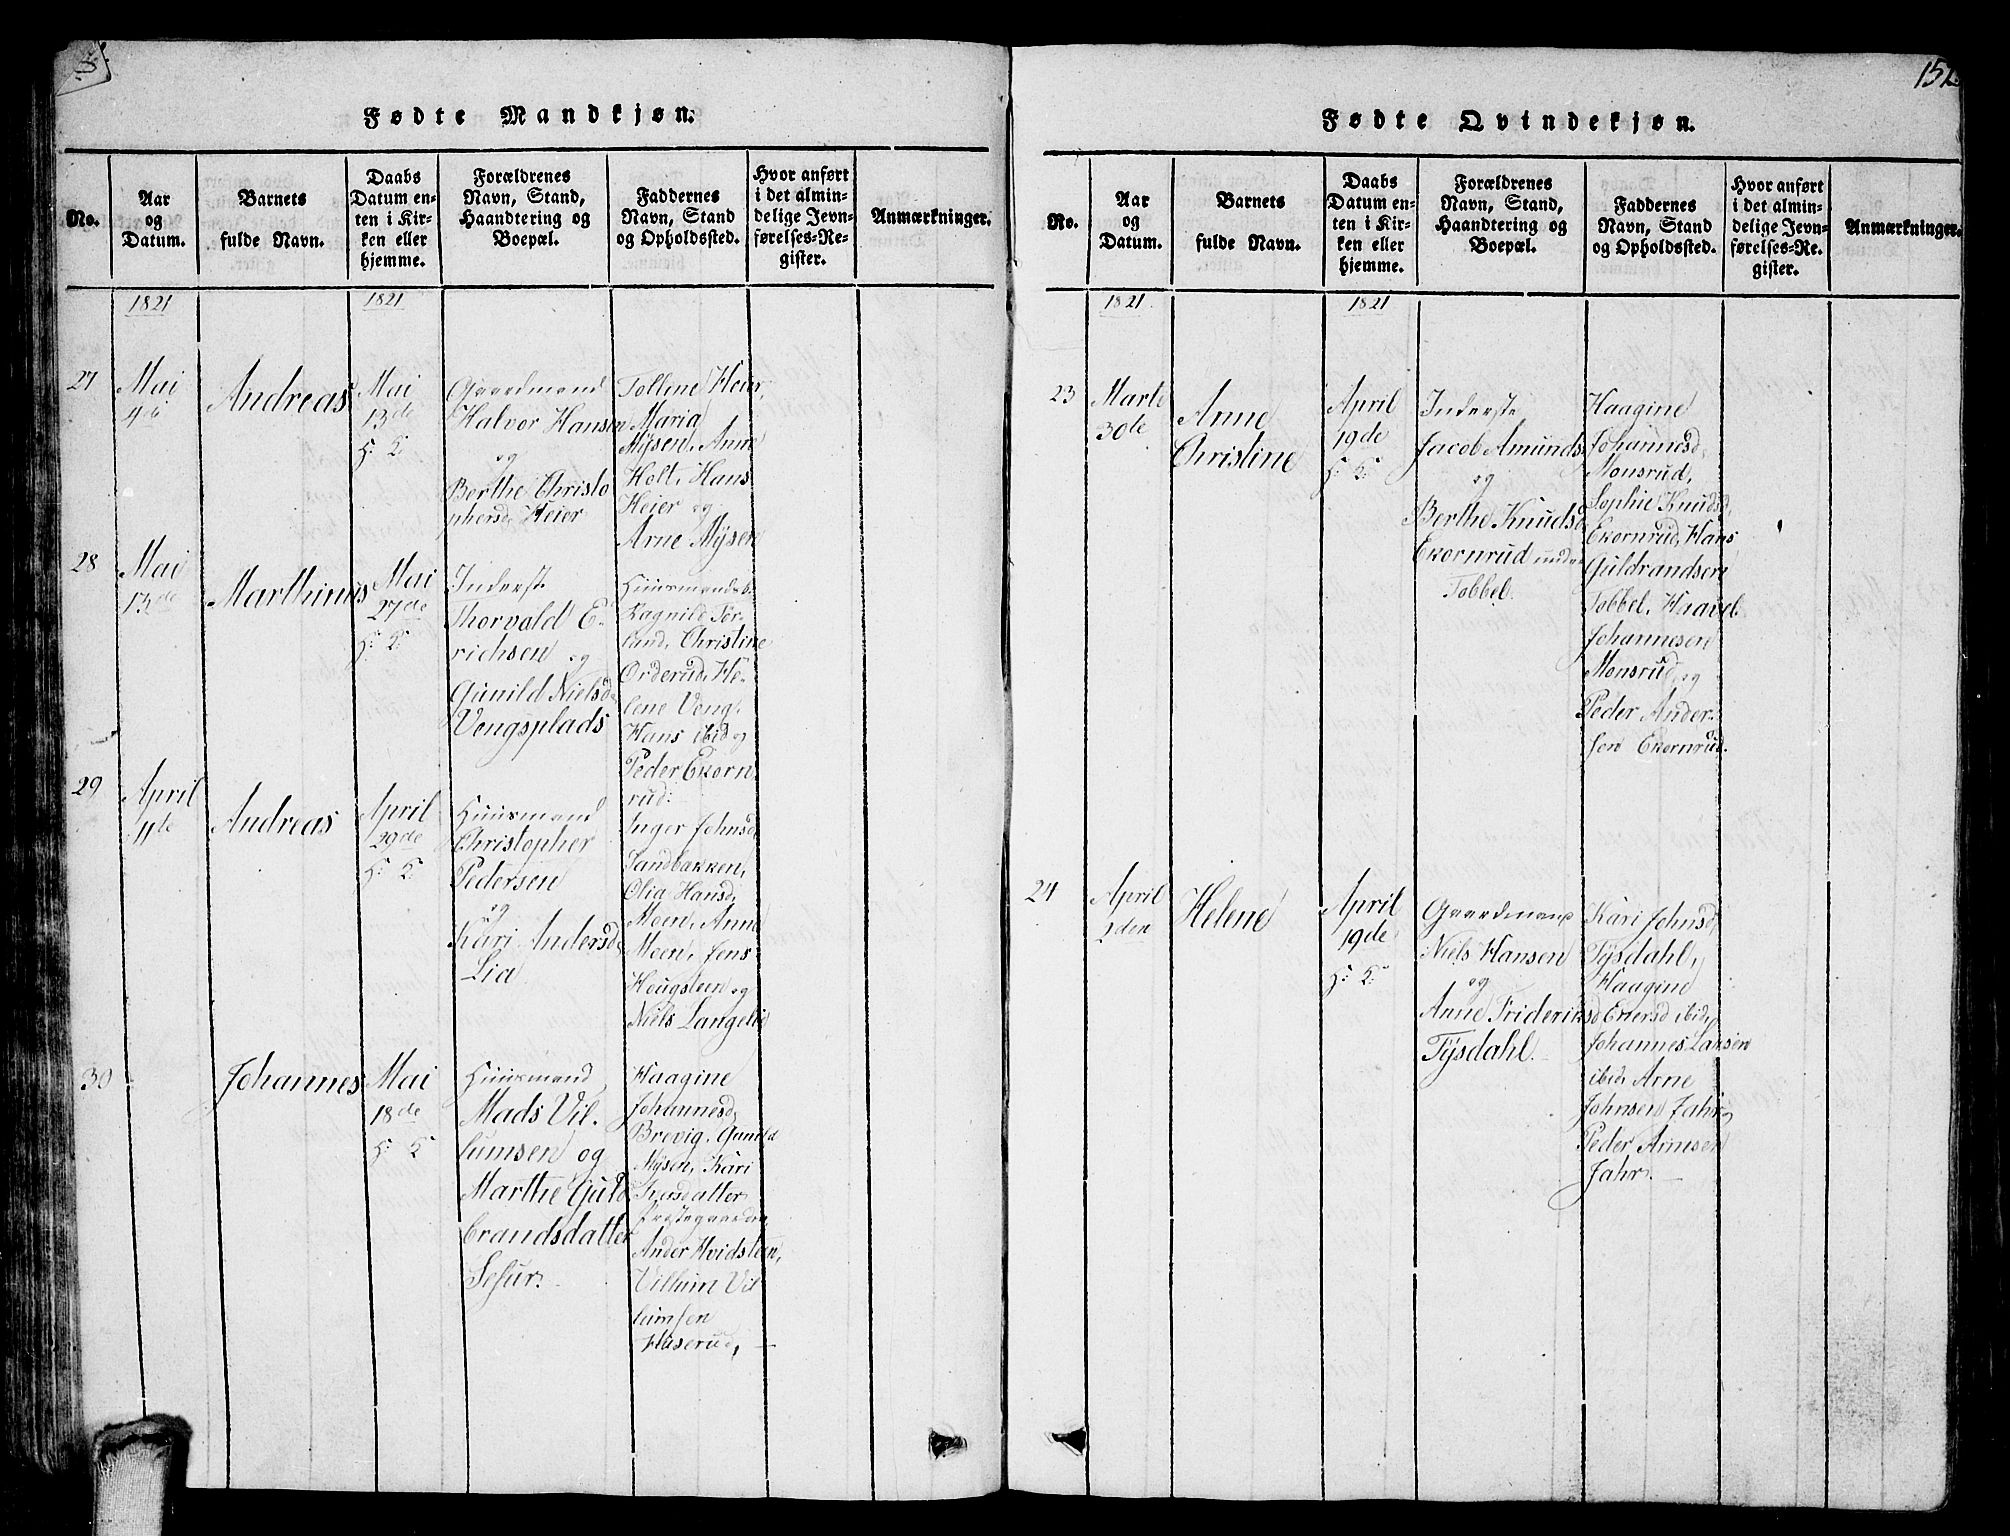 Fødte Mandkjøn.
No.
Aar
og
Datum.
Barnets
fulde Navn.
Daabs
Datum en-
ten i Kir-
ken eller
hjemme.
Forældrenes
Navn, Stand,
Haandtering og
Boepæl.
Faddernes
Navn, Stand
og Opholdssted.
Hvor anført
i det almin-
delige Jevn-
førelses-Re-
gister.
Anmærkninger.
1821
1821
27
Mai
4de
Andreas
Mai
13de
H: K:
Gaardmand
Halvor Hansen
og
Berthe Christo
phersd: Heier
Tollene Heier,
Maria
Mÿsen, Anne
Holt, Hans
Heier og
Arne Mÿsen
28
Mai
13de
Marthinus
Mai
27de
H: K:
Inderst
Thorvald E-
richsen og
Gunild Nielsd:
Vengsplads
Huusmandsk:
Ragnild Tør-
land, Christine
Orderud, He-
lene Veng,
Hans ibid og
Peder Ekorn
rud:
29
April
11te
Andreas
April
29de
H: K:
Huusmand
Christopher
Pedersen
og
Kari Andersd:
Lia
Inger Johnsd
Sandbakken,
Olia Hansd,
Moen, Anne
Moen, Jens
Hougsteen og
Niels Langelie
30
Johannes
Mai
18de
H: K:
Huusmand
Mads Vil-
lumsen og
Marthe Guld
brandsdatter
Sefur.
Haagine
Johannesd,
Brevig, Gunild
Mÿsen, Kari
Iversdatter
Præstegaarden
Ander Hvidsteen,
Villum Vil
lumsen
Haserud,
151
Fødte Qvindekjøn.
No.
Aar
og
Datum.
Barnets
fulde Navn.
Daabs
Datum en-
ten i Kir-
ken eller
hjemme.
Forældrenes
Navn, Stand,
Haandtering og
Boepæl.
Faddernes
Navn, Stand
og Opholdssted.
Hvor anført
i det almin-
delige Jevn-
førelses-Re-
gister.
Anmærkninger.
1821
1821
23
Marts
30te
Anne
Christine
April
19de
H: K:
Inderste
Jacob Amunds
og
Berthe Knudsd
Ekornrud under
Tobbel.
Haagine
Johannesd,
Monsrud,
Sophie Knudsd,
Ekornrud, Hans
Guldrandsen
Tobbel, Haavel
Johannesen
Monsrud, og
Peder Ander-
sen Ekornrud.
24
April
2den
Helene
April
19de
H: K:
Gaardmand
Niels Hansen
og
Anne Frideriksd
Tÿsdahl.
Kari Johnsd,
Tÿsdahl,
Haagine
Eversd ibid,
Johannes Larsen
ibid, Arne
Johnsen Jahr,
Peder Arnesen
Jahr.